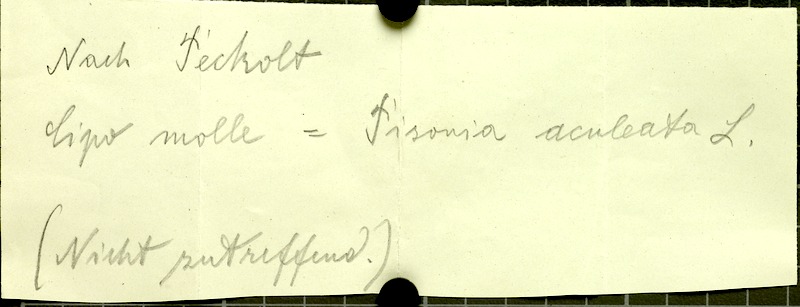 Nach Peckolt
Cipo molle = Pisonia aculeata L.
(Nicht zutreffend.)